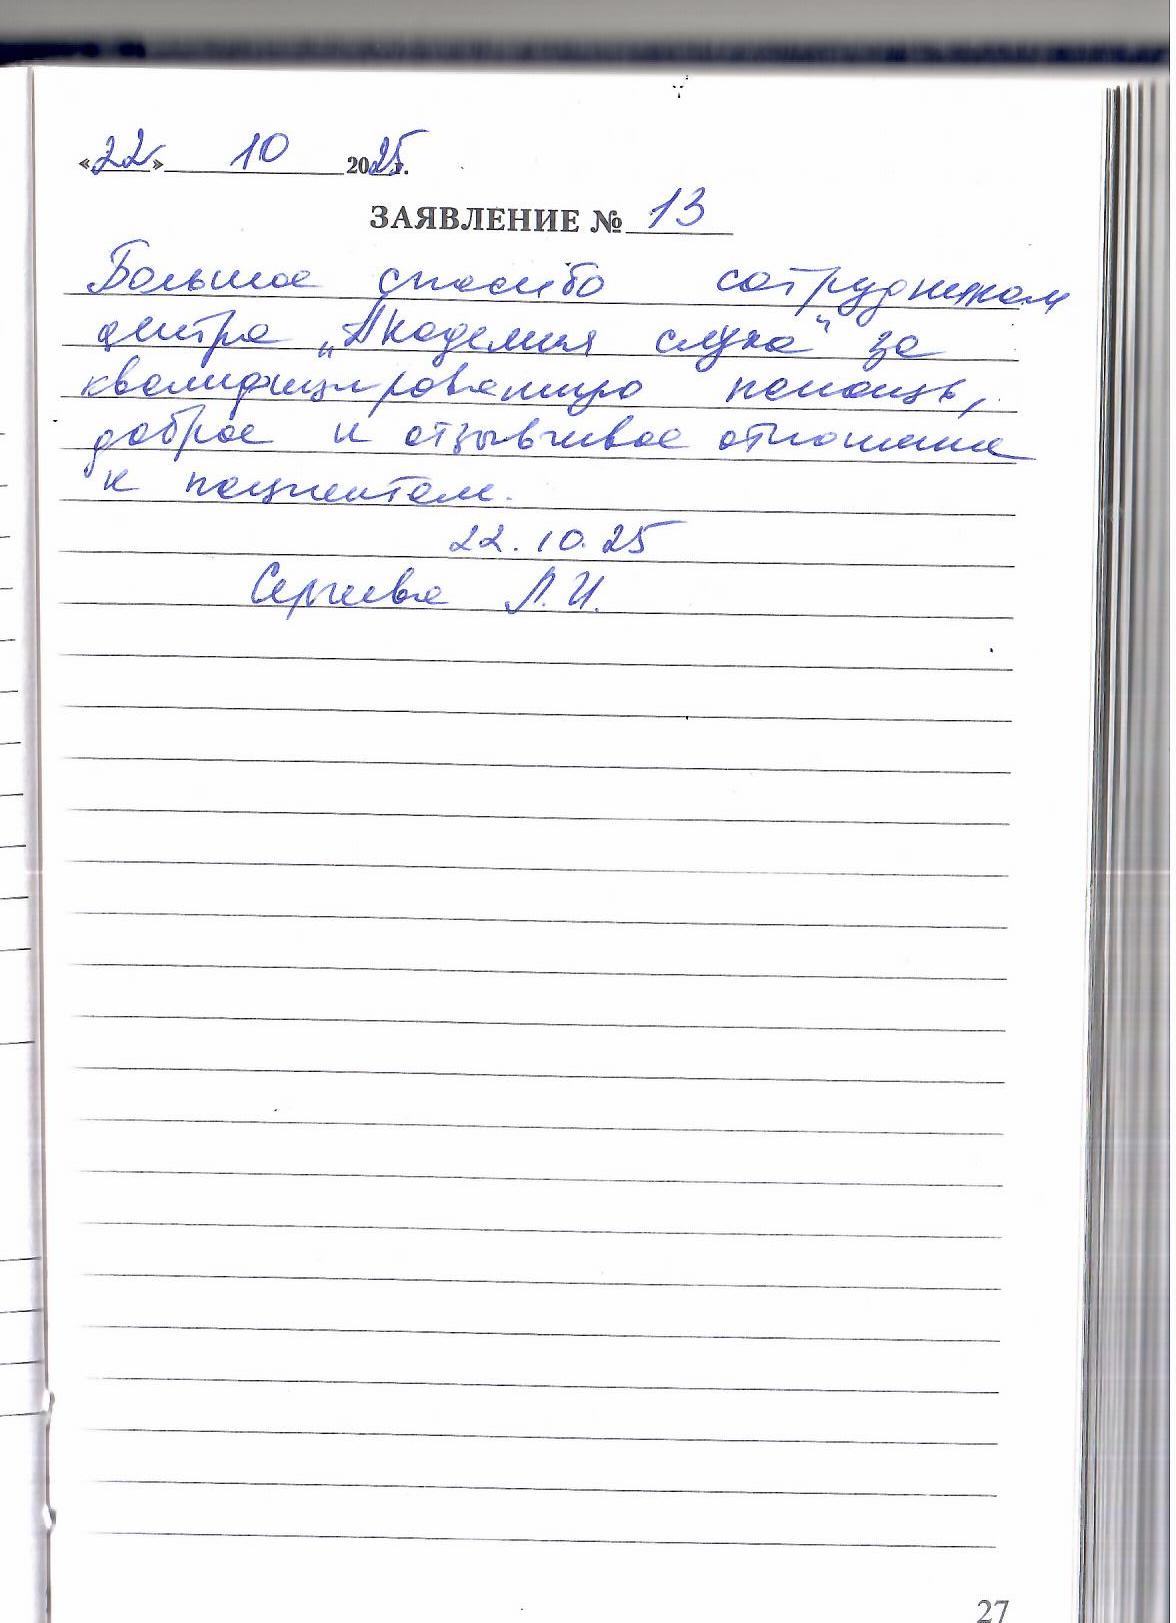 «22» 10 2025 г.
ЗАЯВЛЕНИЕ № 13
Большое спасибо сотрудникам
центра „Академия слуха" за
квалифицированную помощь,
доброе и отзывчивое отношение
к пациентам.
22.10.25
Сергеева Л.И.
27